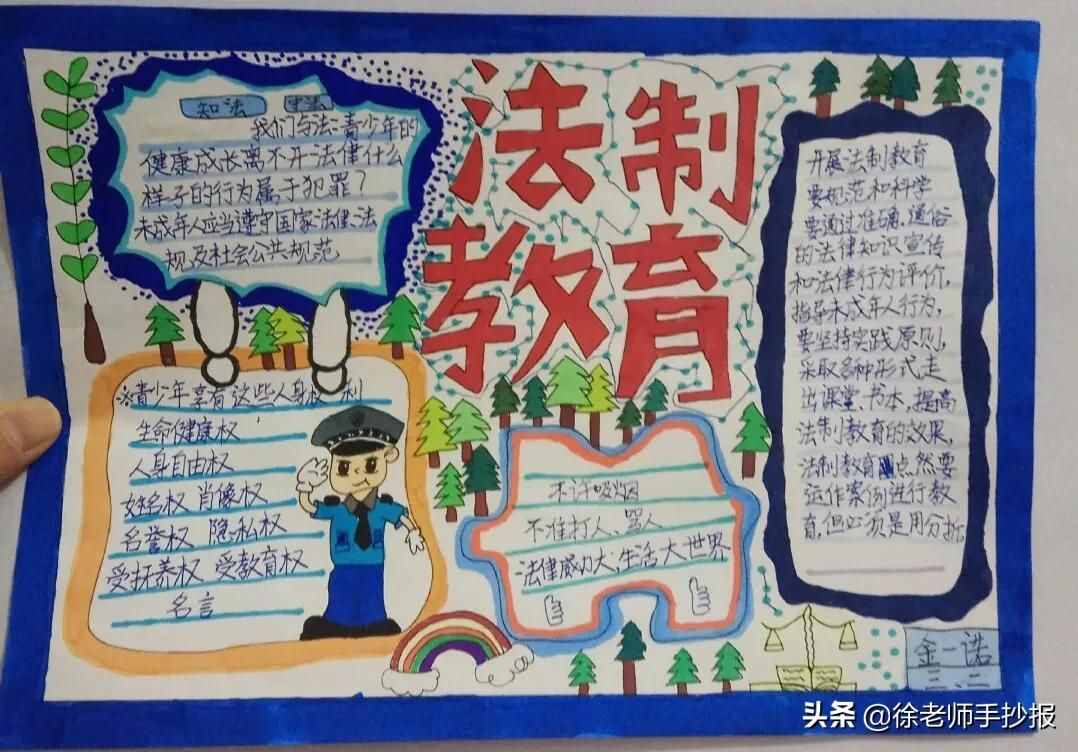 法制
教育
知法 守法
我们与法:青少年的
健康成长离不开法律什么
样子的行为属于犯罪?
未成年人应当遵守国家法律、法
规及社会公共规范
※青少年享有这些人身权利
生命健康权
人身自由权
姓名权 肖像权
名誉权 隐私权
受抚养权 受教育权
名言
不许吸烟
不准打人、骂人
法律威力大,生活大世界
开展法制教育
要规范和科学
要通过准确,通俗
的法律知识宣传
和法律行为评价,
指导未成年人行为,
要坚持实践原则,
采取多种形式走
出课堂、书本,提高
法制教育的效果,
法制教育 点然要
运作案例进行教
育,但必须是用分析
金一诺
三、二
头条 @徐老师手抄报